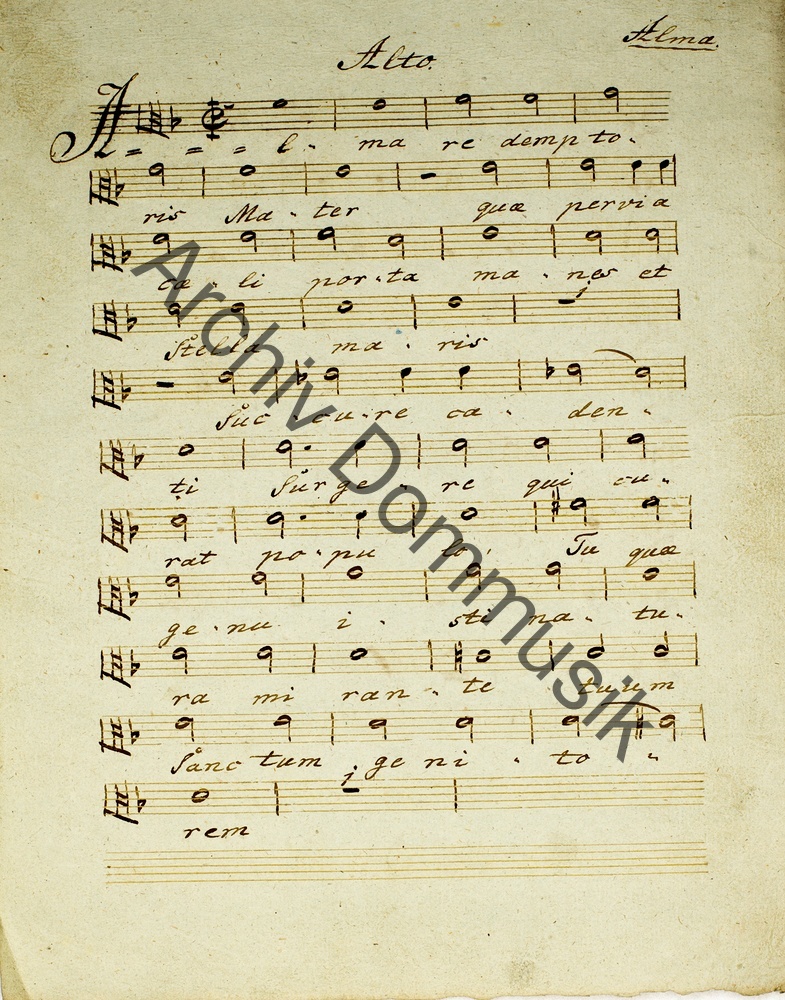 Alma.
Alto.
A = = = l - ma re dempto -
ris Ma - ter quæ pervia
cæ - li por - ta ma - nes et
Stella ma - ris
1
Suc - cu - re ca - den -
ti Sur ge - re qui cu -
rat po - pu lo: Tu quæ
ge - nu i - sti na - tu -
ra mi ran - te tuum
Sanc tum ge ni - to -
1
rem
Archiv Dommusik